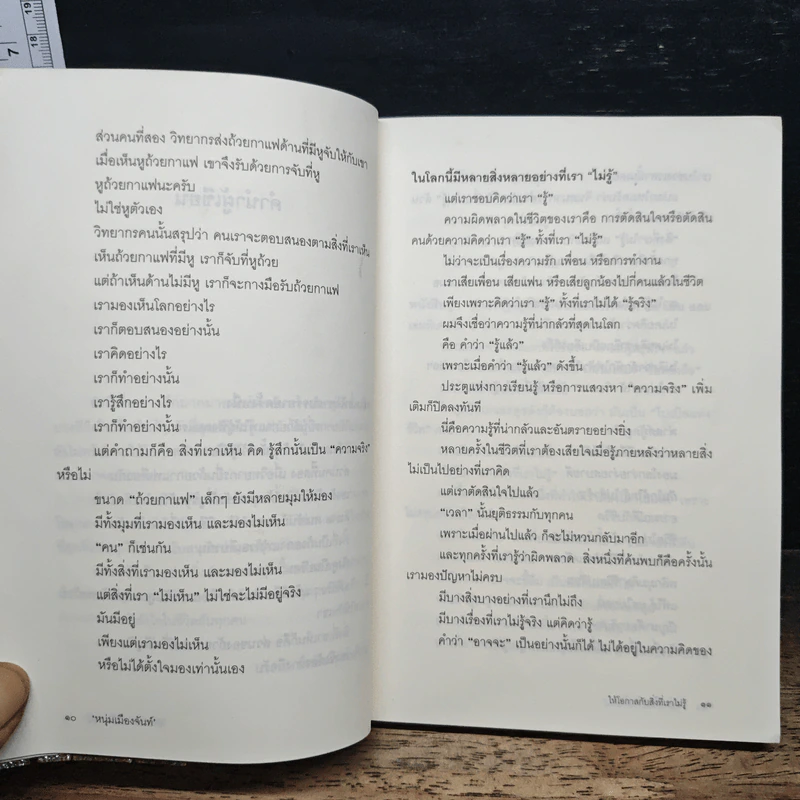 7
18
19
ส่วนคนที่สอง วิทยากรส่งถ้วยกาแฟด้านที่มีหูจับให้กับเขา
เมื่อเห็นหูถ้วยกาแฟ เขาจึงรับด้วยการจับที่หู
หูถ้วยกาแฟนะครับ
ไม่ใช่หูตัวเอง
วิทยากรคนนั้นสรุปว่า คนเราจะตอบสนองตามสิ่งที่เราเห็น
เห็นถ้วยกาแฟที่มีหู เราก็จับที่หูถ้วย
แต่ถ้าเห็นด้านไม่มีหู เราก็จะกางมือรับถ้วยกาแฟ
เรามองเห็นโลกอย่างไร
เราก็ตอบสนองอย่างนั้น
เราคิดอย่างไร
เราก็ทำอย่างนั้น
เรารู้สึกอย่างไร
เราก็ทำอย่างนั้น
แต่คำถามก็คือ สิ่งที่เราเห็น คิด รู้สึกนั้นเป็น “ความจริง”
หรือไม่
ขนาด “ถ้วยกาแฟ” เล็กๆ ยังมีหลายมุมให้มอง
มีทั้งมุมที่เรามองเห็น และมองไม่เห็น
“คน” ก็เช่นกัน
มีทั้งสิ่งที่เรามองเห็น และมองไม่เห็น
แต่สิ่งที่เรา “ไม่เห็น” ไม่ใช่จะไม่มีอยู่จริง
มันมีอยู่
เพียงแต่เรามองไม่เห็น
หรือไม่ได้ตั้งใจมองเท่านั้นเอง
๑๐ ‘หนุ่มเมืองจันท์’
ในโลกนี้มีหลายสิ่งหลายอย่างที่เรา “ไม่รู้”
แต่เราชอบคิดว่าเรา “รู้”
ความผิดพลาดในชีวิตของเราคือ การตัดสินใจหรือตัดสิน
คนด้วยความคิดว่าเรา “รู้” ทั้งที่เรา “ไม่รู้”
ไม่ว่าจะเป็นเรื่องความรัก เพื่อน หรือการทำงาน
เราเสียเพื่อน เสียแฟน หรือเสียลูกน้องไปกี่คนแล้วในชีวิต
เพียงเพราะคิดว่าเรา “รู้” ทั้งที่เราไม่ได้ “รู้จริง”
ผมจึงเชื่อว่าความรู้ที่น่ากลัวที่สุดในโลก
คือ คำว่า “รู้แล้ว”
เพราะเมื่อคำว่า “รู้แล้ว” ดังขึ้น
ประตูแห่งการเรียนรู้ หรือการแสวงหา “ความจริง” เพิ่ม
เติมก็ปิดลงทันที
นี่คือความรู้ที่น่ากลัวและอันตรายอย่างยิ่ง
หลายครั้งในชีวิตที่เราต้องเสียใจเมื่อรู้ภายหลังว่าหลายสิ่ง
ไม่เป็นไปอย่างที่เราคิด
แต่เราตัดสินใจไปแล้ว
“เวลา” นั้นยุติธรรมกับทุกคน
เพราะเมื่อผ่านไปแล้ว ก็จะไม่หวนกลับมาอีก
และทุกครั้งที่เรารู้ว่าผิดพลาด สิ่งหนึ่งที่ค้นพบก็คือครั้งนั้น
เรามองปัญหาไม่ครบ
มีบางสิ่งบางอย่างที่เรานึกไม่ถึง
มีบางเรื่องที่เราไม่รู้จริง แต่คิดว่ารู้
คำว่า “อาจจะ” เป็นอย่างนั้นก็ได้ ไม่ได้อยู่ในความคิดของ
ให้โอกาสกับสิ่งที่เราไม่รู้ ๑๑